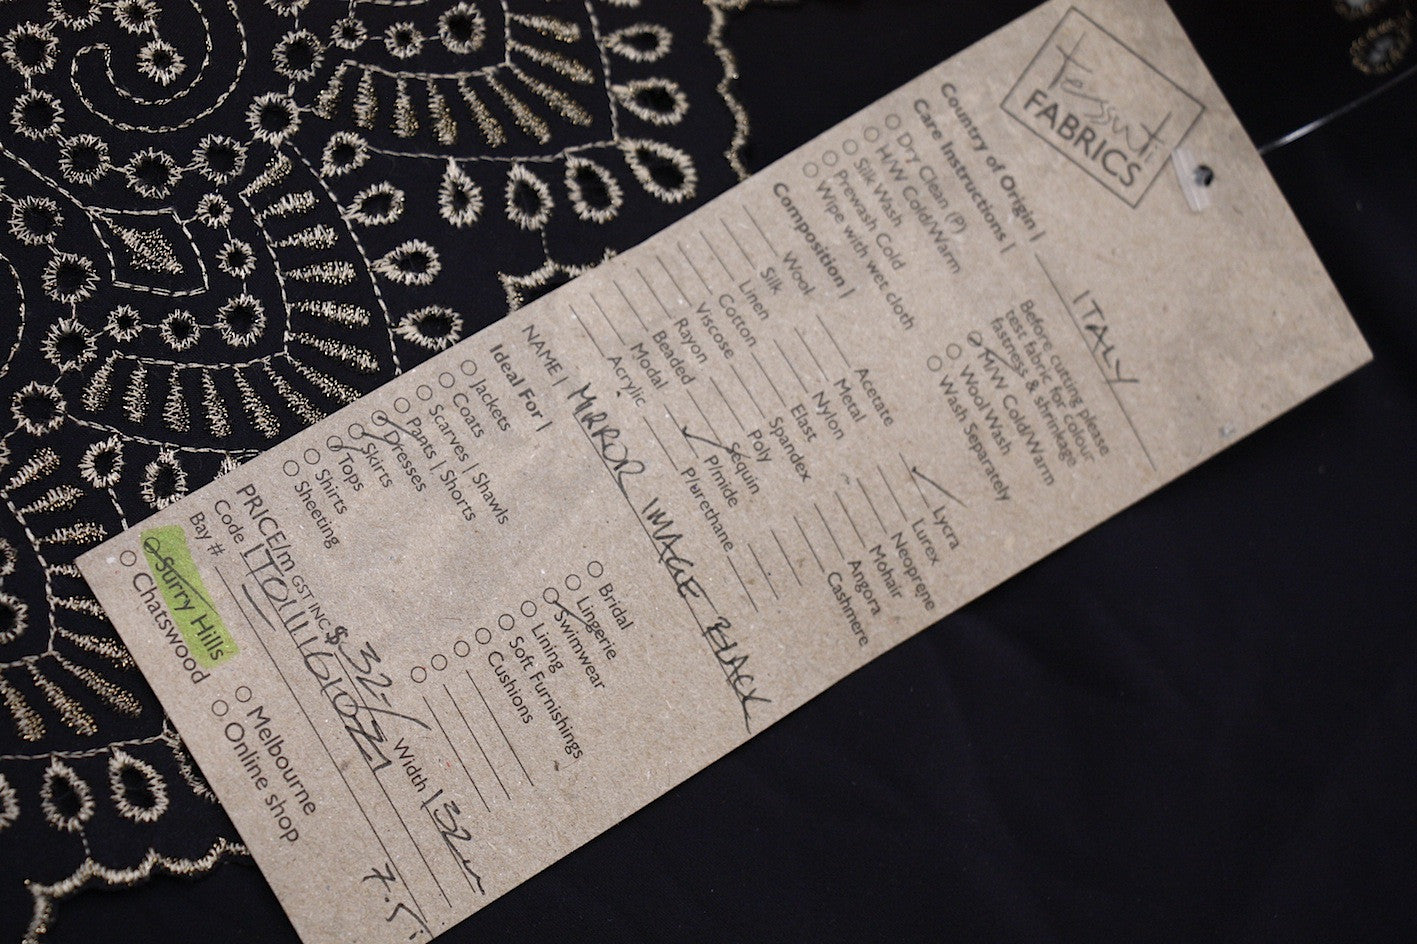 Tessuti
FABRICS
Country of Origin | ITALY
Care Instructions |
Dry Clean (P)
H/W Cold/Warm
Silk Wash
Prewash Cold
Wipe with wet cloth
Before cutting please
test fabric for colour
fastness & shrinkage
M/W Cold/Warm
Wool Wash
Wash Separately
Composition |
Wool
Silk
Linen
Cotton
Viscose
Rayon
Beaded
Modal
Acrylic
Acetate
Metal
Nylon
Elast
Spandex
Poly
Sequin
P/mide
P/urethane
Lycra
Lurex
Neoprene
Mohair
Angora
Cashmere
NAME | MIRROR IMAGE BLACK
Ideal For |
Jackets
Coats
Scarves | Shawls
Pants | Shorts
Dresses
Skirts
Tops
Shirts
Sheeting
Bridal
Lingerie
Swimwear
Lining
Soft Furnishings
Cushions
PRICE/m GST INC $ 32-/ Width 132
Code |
Bay # 7.5
Surry Hills
Chatswood
Melbourne
Online shop